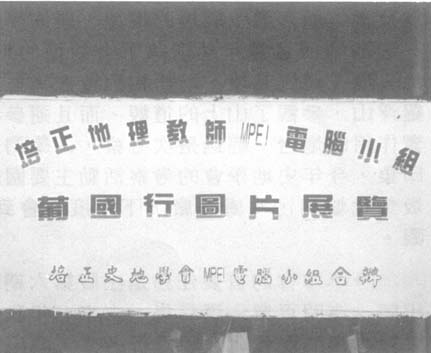 培正地理教師 MPEI 電腦小組
葡國行圖片展覽
培正史地學會 MPEI 電腦小組合辦